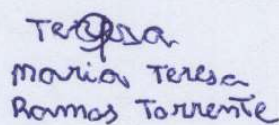 Teresa
Maria Teresa
Ramos Torrente